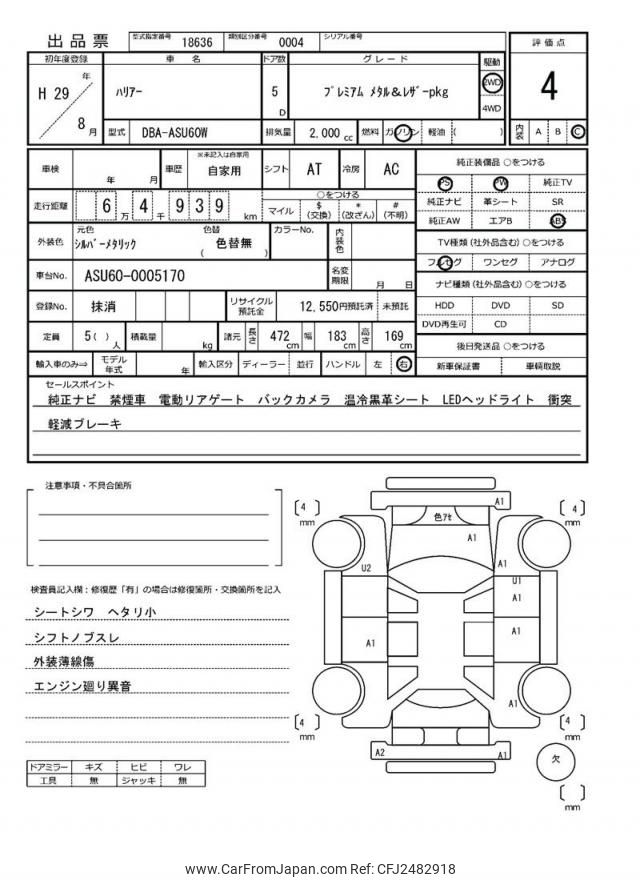 出品票 型式指定番号 18636 類別区分番号 0004 シリアル番号
初年度登録 車名 ドア数 グレード 駆動 評価点
H 29 年 8 月 ﾊﾘｱｰ 5 D ﾌﾟﾚﾐｱﾑ ﾒﾀﾙ&ﾚｻﾞｰpkg 2WD 4WD 4
型式 DBA-ASU60W 排気量 2,000 cc 燃料 ガソリン 軽油 ( ) 内装 A B C
車検 年 月 車歴 ※未記入は自家用 自家用 シフト AT 冷房 AC
純正装備品 ○をつける
PS PW 純正TV
純正ナビ 革シート SR
純正AW エアB ABS
走行距離 6 万 4 千 9 3 9 km ○をつける マイル $ (交換) * (改ざん) # (不明)
外装色 元色 ｼﾙﾊﾞｰﾒﾀﾘｯｸ 色替 ( 色替無 ) カラーNo. 内装色
TV種類 (社外品含む) ○をつける
フルセグ ワンセグ アナログ
車台No. ASU60-0005170 名変期限 月 日
ナビ種類 (社外品含む) ○をつける
HDD DVD SD
DVD再生可 CD
登録No. 抹消 リサイクル預託金 12,550円預託済 未預託
定員 5( ) 人 積載量 kg 諸元 長さ 472 cm 幅 183 cm 高さ 169 cm
後日発送品 ○をつける
新車保証書 車輌取説
輸入車のみ⇒ モデル年式 年 輸入区分 ディーラー 並行 ハンドル 左 右
セールスポイント
純正ナビ 禁煙車 電動リアゲート バックカメラ 温冷黒革シート LEDヘッドライト 衝突
軽減ブレーキ
注意事項・不具合箇所
検査員記入欄：修復歴「有」の場合は修復箇所・交換箇所を記入
シートシワ ヘタリ小
シフトノブスレ
外装薄線傷
エンジン廻り異音
ドアミラー キズ ヒビ ワレ
工具 無 ジャッキ 無
A1
[ 4 ] mm 色ｱｾ [ 4 ] mm
A1
U2 A1
U1
A1
A1 A1
A1
[ 4 ] mm [ 4 ] mm
A2 A1
欠
[ ] mm
www.CarFromJapan.com Ref: CFJ2482918